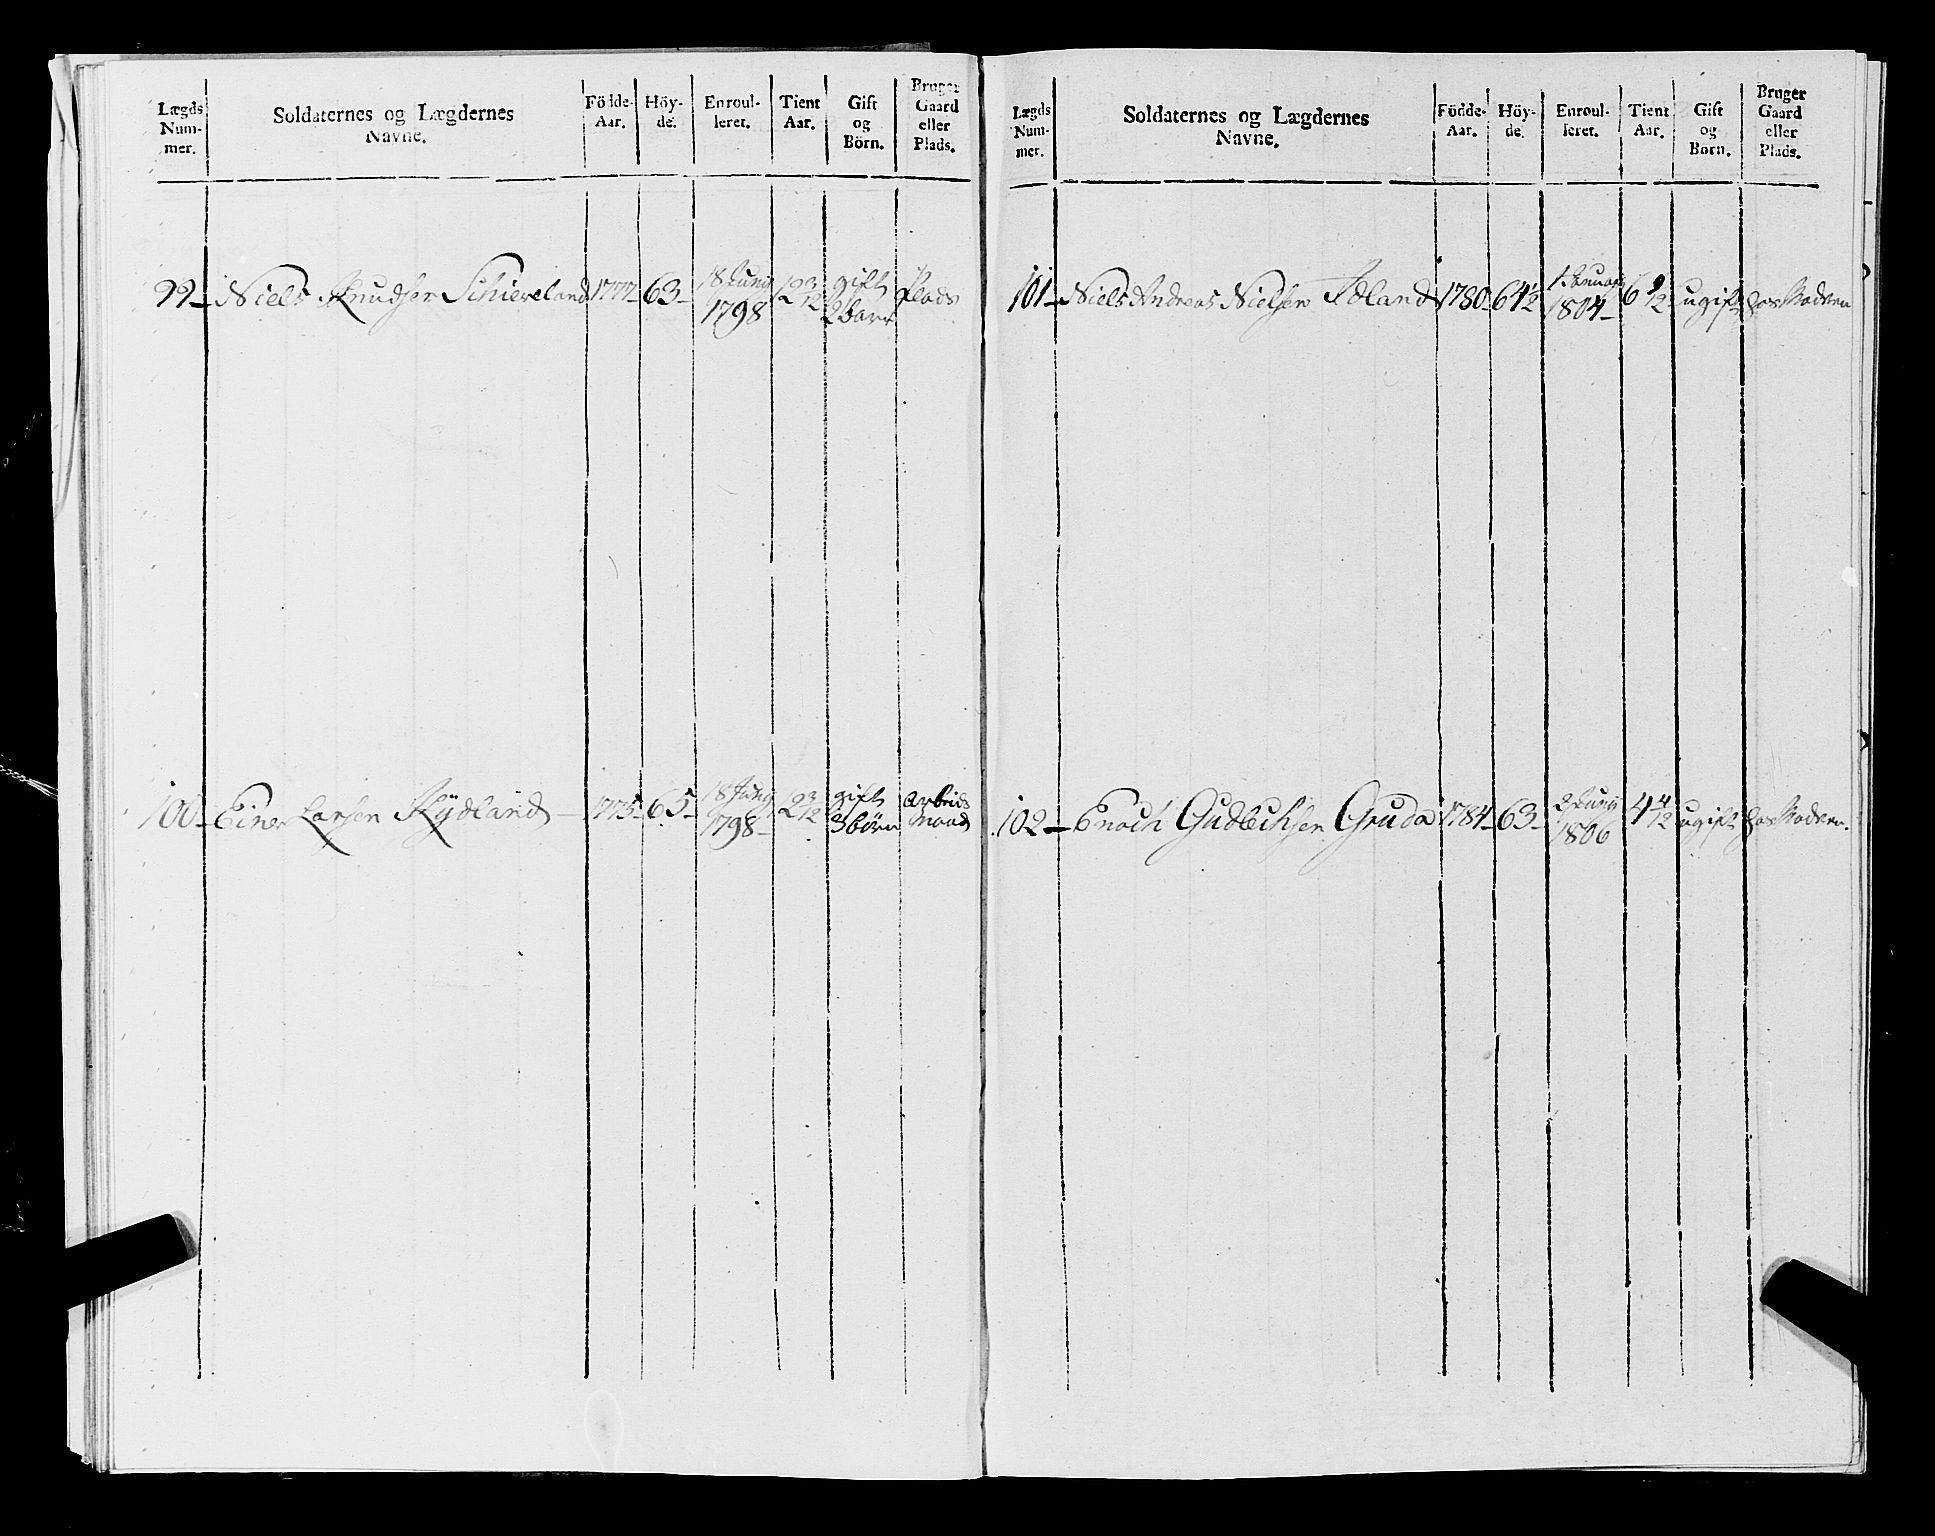 Lægds Num- mer.
Soldaternes og Lægdernes Navne.
Födde- Aar.
Höy- de.
Enroul- leret.
Tient Aar.
Gift og Börn.
Bruger Gaard eller Plads.
99 - Niels Knudsen Schieveland 1777 - 63 - 18 Juny 1798 12 3/12 gift 2 barn Plads
100 - Einer Larsen Rydland - 1775 - 65 - 18 Juny 1798 - 12 3/12 gift 3 börn Arbeids Mand
Lægds Num- mer.
Soldaternes og Lægdernes Navne.
Födde- Aar.
Höy- de.
Enroul- leret.
Tient Aar.
Gift og Born.
Bruger Gaard eller Plads.
101 - Niels Andreas Nielsen 1780 - 64 1/2 1 Januar 1804 - 6 9/12 ugift hos Fadren
102 - Enoch Gudlichsen Gruda 1784 - 63 - Juny 1806 4 4/12 ugift hos Fadren.